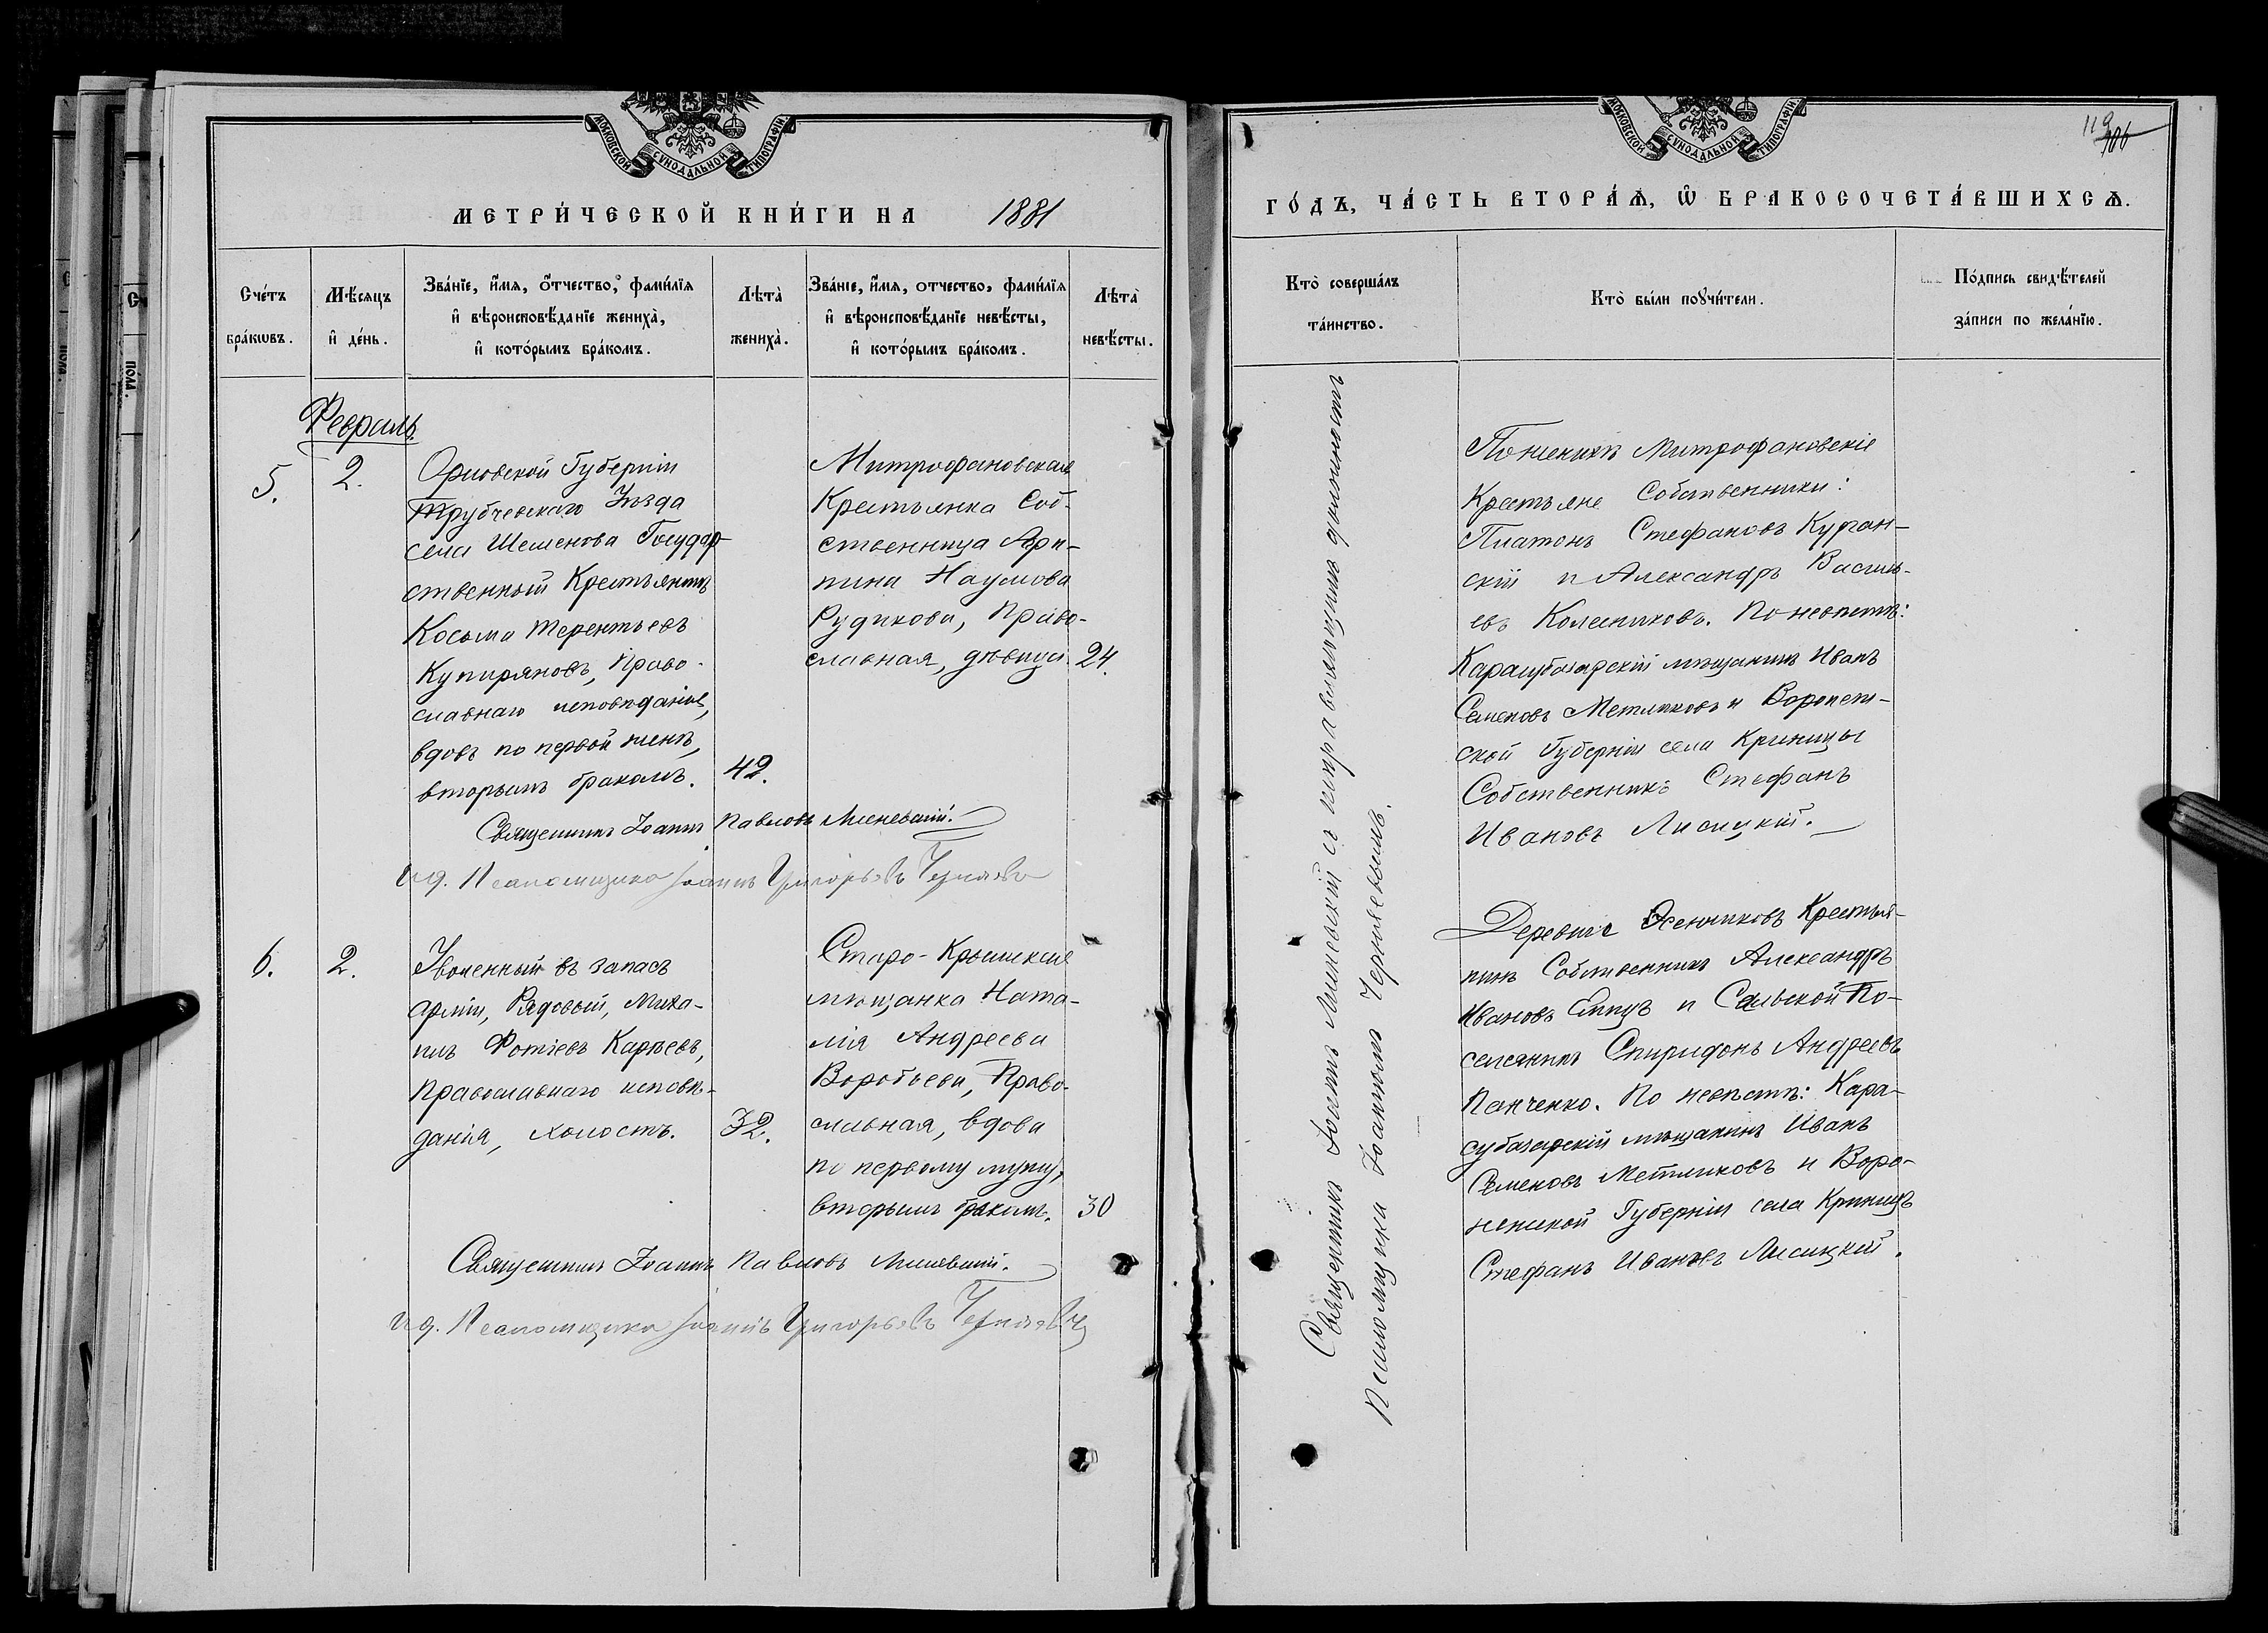 МОСКОВСКОЙ СѴНОДАЛЬНОЙ ТИПОГРАФІИ
МЕТРИ́ЧЕСКОЙ КНИ́ГИ НА 1881
Сче́тъ бра́кѡвъ.
Мѣ́сяцъ и҆ де́нь.
Зва́нїе, и҆́мѧ, ѻ҆́тчество, фами́лїѧ
и҆ вѣроисповѣ́данїе жениха̀,
и҆ кото́рымъ бра́комъ.
Лѣта̀ жениха̀.
Зва́нїе, и҆́мѧ, отчество, фами́лїѧ
и҆ вѣроисповѣ́данїе невѣ́сты,
и҆ кото́рымъ бра́комъ.
Лѣта̀ невѣ́сты.
Февраль
5.
2.
Орловской Губерніи
Трубчевскаго Уѣзда
села Шеменова Государ-
ственный Крестьянинъ
Косьма Терентьевъ
Купиряновъ, Право-
славнаго исповѣданія,
вдовъ по первой женѣ,
вторымъ бракомъ.
42.
Митрофановская
Крестьянка Соб-
ственница Агри-
пина Наумова
Рудикова, Право-
славная, дѣвица.
24.
Священникъ Іоаннъ Павловъ
и.д. Псаломщика Іоаннъ Григорьевъ Черняевъ
6.
2.
Уволенный въ запасъ
арміи, Рядовый, Миха-
илъ Фотіевъ Карпевъ,
Православнаго исповѣ-
данія, холостъ.
32.
Старо-Крымская
мѣщанка Ната-
лія Андреева
Воробьева, Право-
славная, вдова
по первому мужу,
вторымъ бракомъ.
30
Священникъ Іоаннъ Павловъ
и.д. Псаломщика Іоаннъ Григорьевъ Черняевъ
МОСКОВСКОЙ СѴНОДАЛЬНОЙ ТИПОГРАФІИ
119
106
ГО́ДЪ, ЧА́СТЬ ВТОРА́Ѧ, Ѡ҆ БРАКОСОЧЕТА́ВШИХСѦ.
Кто̀ соверша́лъ
та́инство.
Кто̀ бы́ли пору́чи́тели.
По́дпись свидѣ́телей
за́писи по жела́нїю.
Священникъ Іоаннъ съ исправляющимъ должность
Псаломщика Іоанномъ Черняевымъ.
По женихѣ Митрофановскіе
Крестьяне Собственники:
Платонъ Стефановъ Курган-
скій и Александръ Василь-
евъ Колесниковъ. По невѣстѣ:
Карасубазарскій мѣщанинъ Иванъ
Семеновъ Метликовъ и Воронеж-
ской Губерніи села Криницы
Собственникъ Стефанъ
Ивановъ Лисицкій.
Деревни Крестья-
нинъ Собственникъ Александръ
Ивановъ и Сельской По-
селянинъ Спиридонъ Андреевъ
Панченко. По невѣстѣ: Кара-
субазарскій мѣщанинъ Иванъ
Семеновъ Метликовъ и Воро-
нежской Губерніи села Криницъ
Стефанъ Ивановъ Лисицкій.